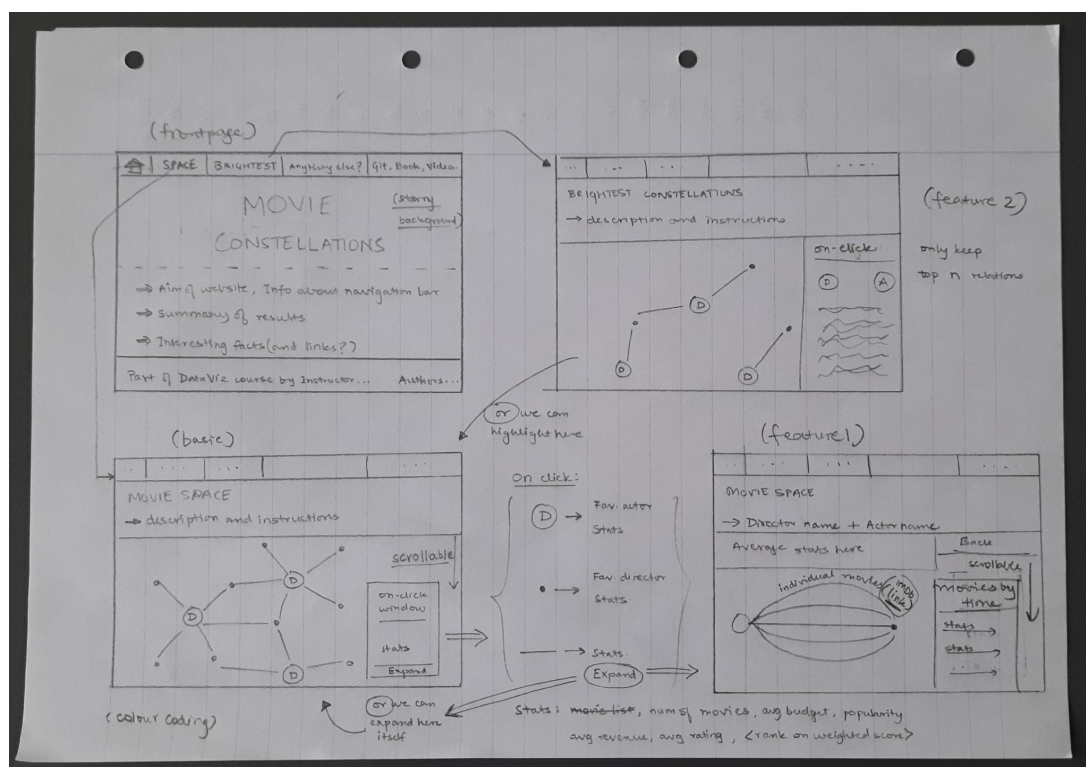 (frontpage)
SPACE
BRIGHTEST
Anything else?
Git, Book, Video
MOVIE
CONSTELLATIONS
(starry
background)
→ Aim of website, Info about navigation bar
→ Summary of results
→ Interesting facts (and links?)
Part of DataViz course by Instructor...
Authors...
.. ... ... ....
BRIGHTEST CONSTELLATIONS
→ description and instructions
on-click
D A
D
D
D
(feature 2)
only keep
top n relations
or we can
highlight here
(basic)
.. ... ... ...
MOVIE SPACE
→ description and instructions
D
D
D
scrollable
on-click
window
stats
Expand
(colour coding)
or we can
expand here
itself
On click:
D → Fav. actor
Stats
• → Fav. director
Stats
— → Stats
Expand
(feature 1)
.. ... ... ...
MOVIE SPACE
→ Director name + Actor name
Average stats here
individual movies (imdb
link)
Back
scrollable
movies by
time
stats
stats
...
Stats: movie list, nums of movies, avg budget, popularity
avg revenue, avg rating, <rank on weighted score>